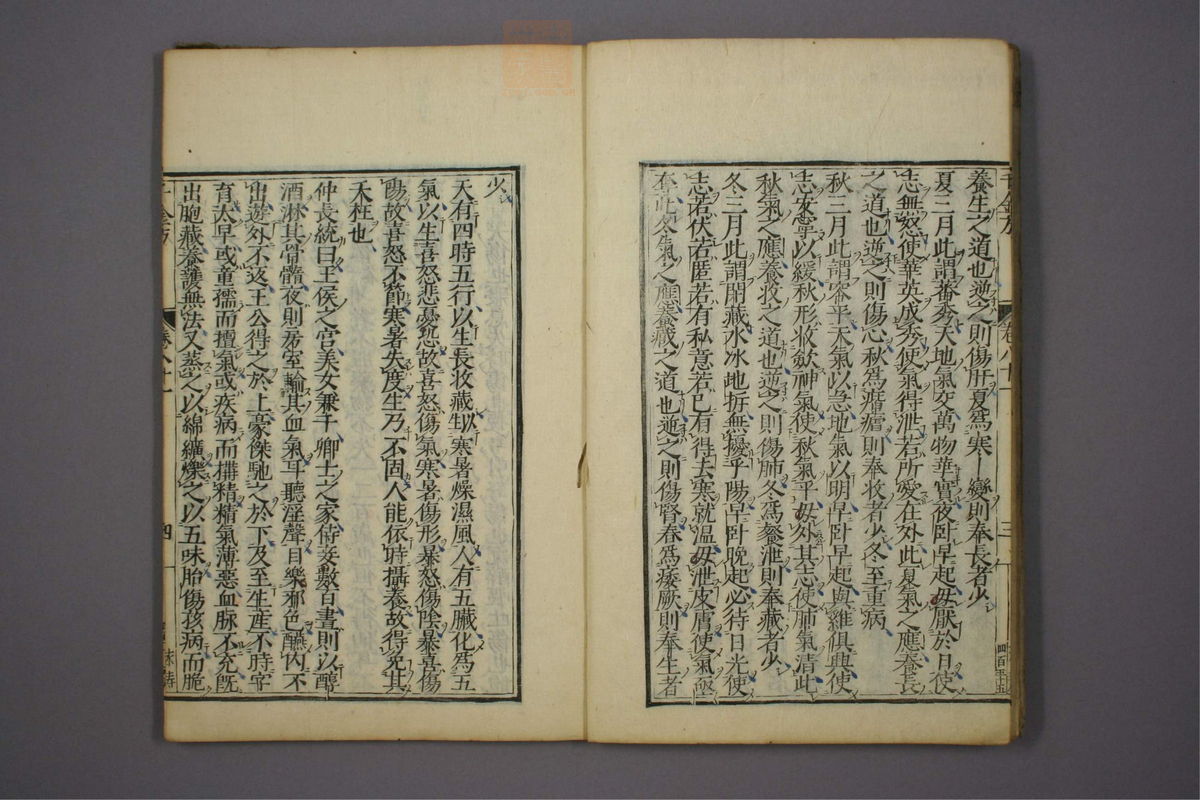 養生之道也逆之則傷肝夏爲寒變則奉長者少
夏三月此謂蕃秀天地氣交萬物華實夜卧早起毋厭於日使
志無怒使華英成秀使氣得泄若所愛在外此夏氣之應養長
之道也逆之則傷心秋爲痎瘧則奉收者少冬至重病
秋三月此謂容平天氣以急地氣以明早卧早起與雞俱興使
志安寧以緩秋形收歛神氣使秋氣平毋外其志使肺氣清此
秋氣之應養收之道也逆之則傷肺冬爲飱泄則奉藏者少
冬三月此謂閉藏水冰地拆無擾乎陽早卧晚起必待日光使
志若伏若匿若有私意若已有得去寒就温毋泄皮膚使氣亟
奪此冬氣之應養藏之道也逆之則傷腎春爲痿厥則奉生者
千金方
卷八十一
三
四百五十五
少
天有四時五行以生長收藏以寒暑燥濕風人有五臟化爲五
氣以生喜怒悲憂恐故喜怒傷氣寒暑傷形暴怒傷陰暴喜傷
陽故喜怒不節寒暑失度生乃不固人能依時攝養故得免其
夭枉也
仲長統曰王侯之宮美女兼千卿士之家侍妾數百晝則以醇
酒淋其骨髓夜則房室輸其血氣耳聽淫聲目樂邪色醼内不
出遊外不返王公得之於上豪傑馳之於下及至生産不時字
育太早或童孺而擅氣或疾病而搆精精氣薄惡血脉不充旣
出胞藏養護無法又蒸之以綿纊爍之以五味胎傷孩病而脆
千金方
卷八十一
四